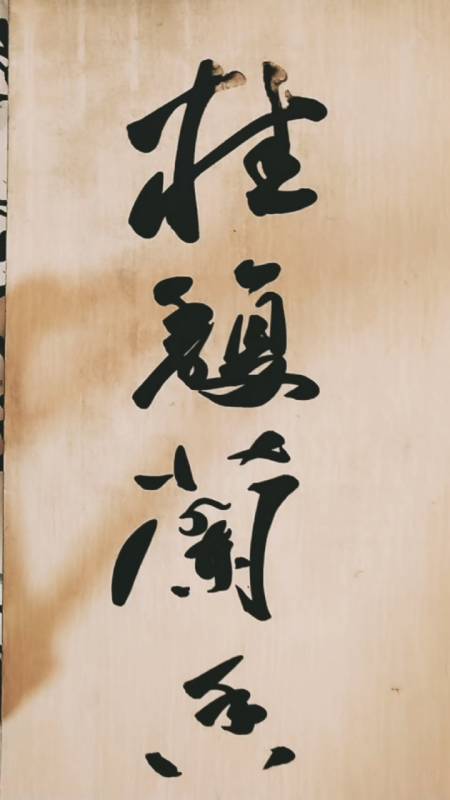 桂馥蘭香